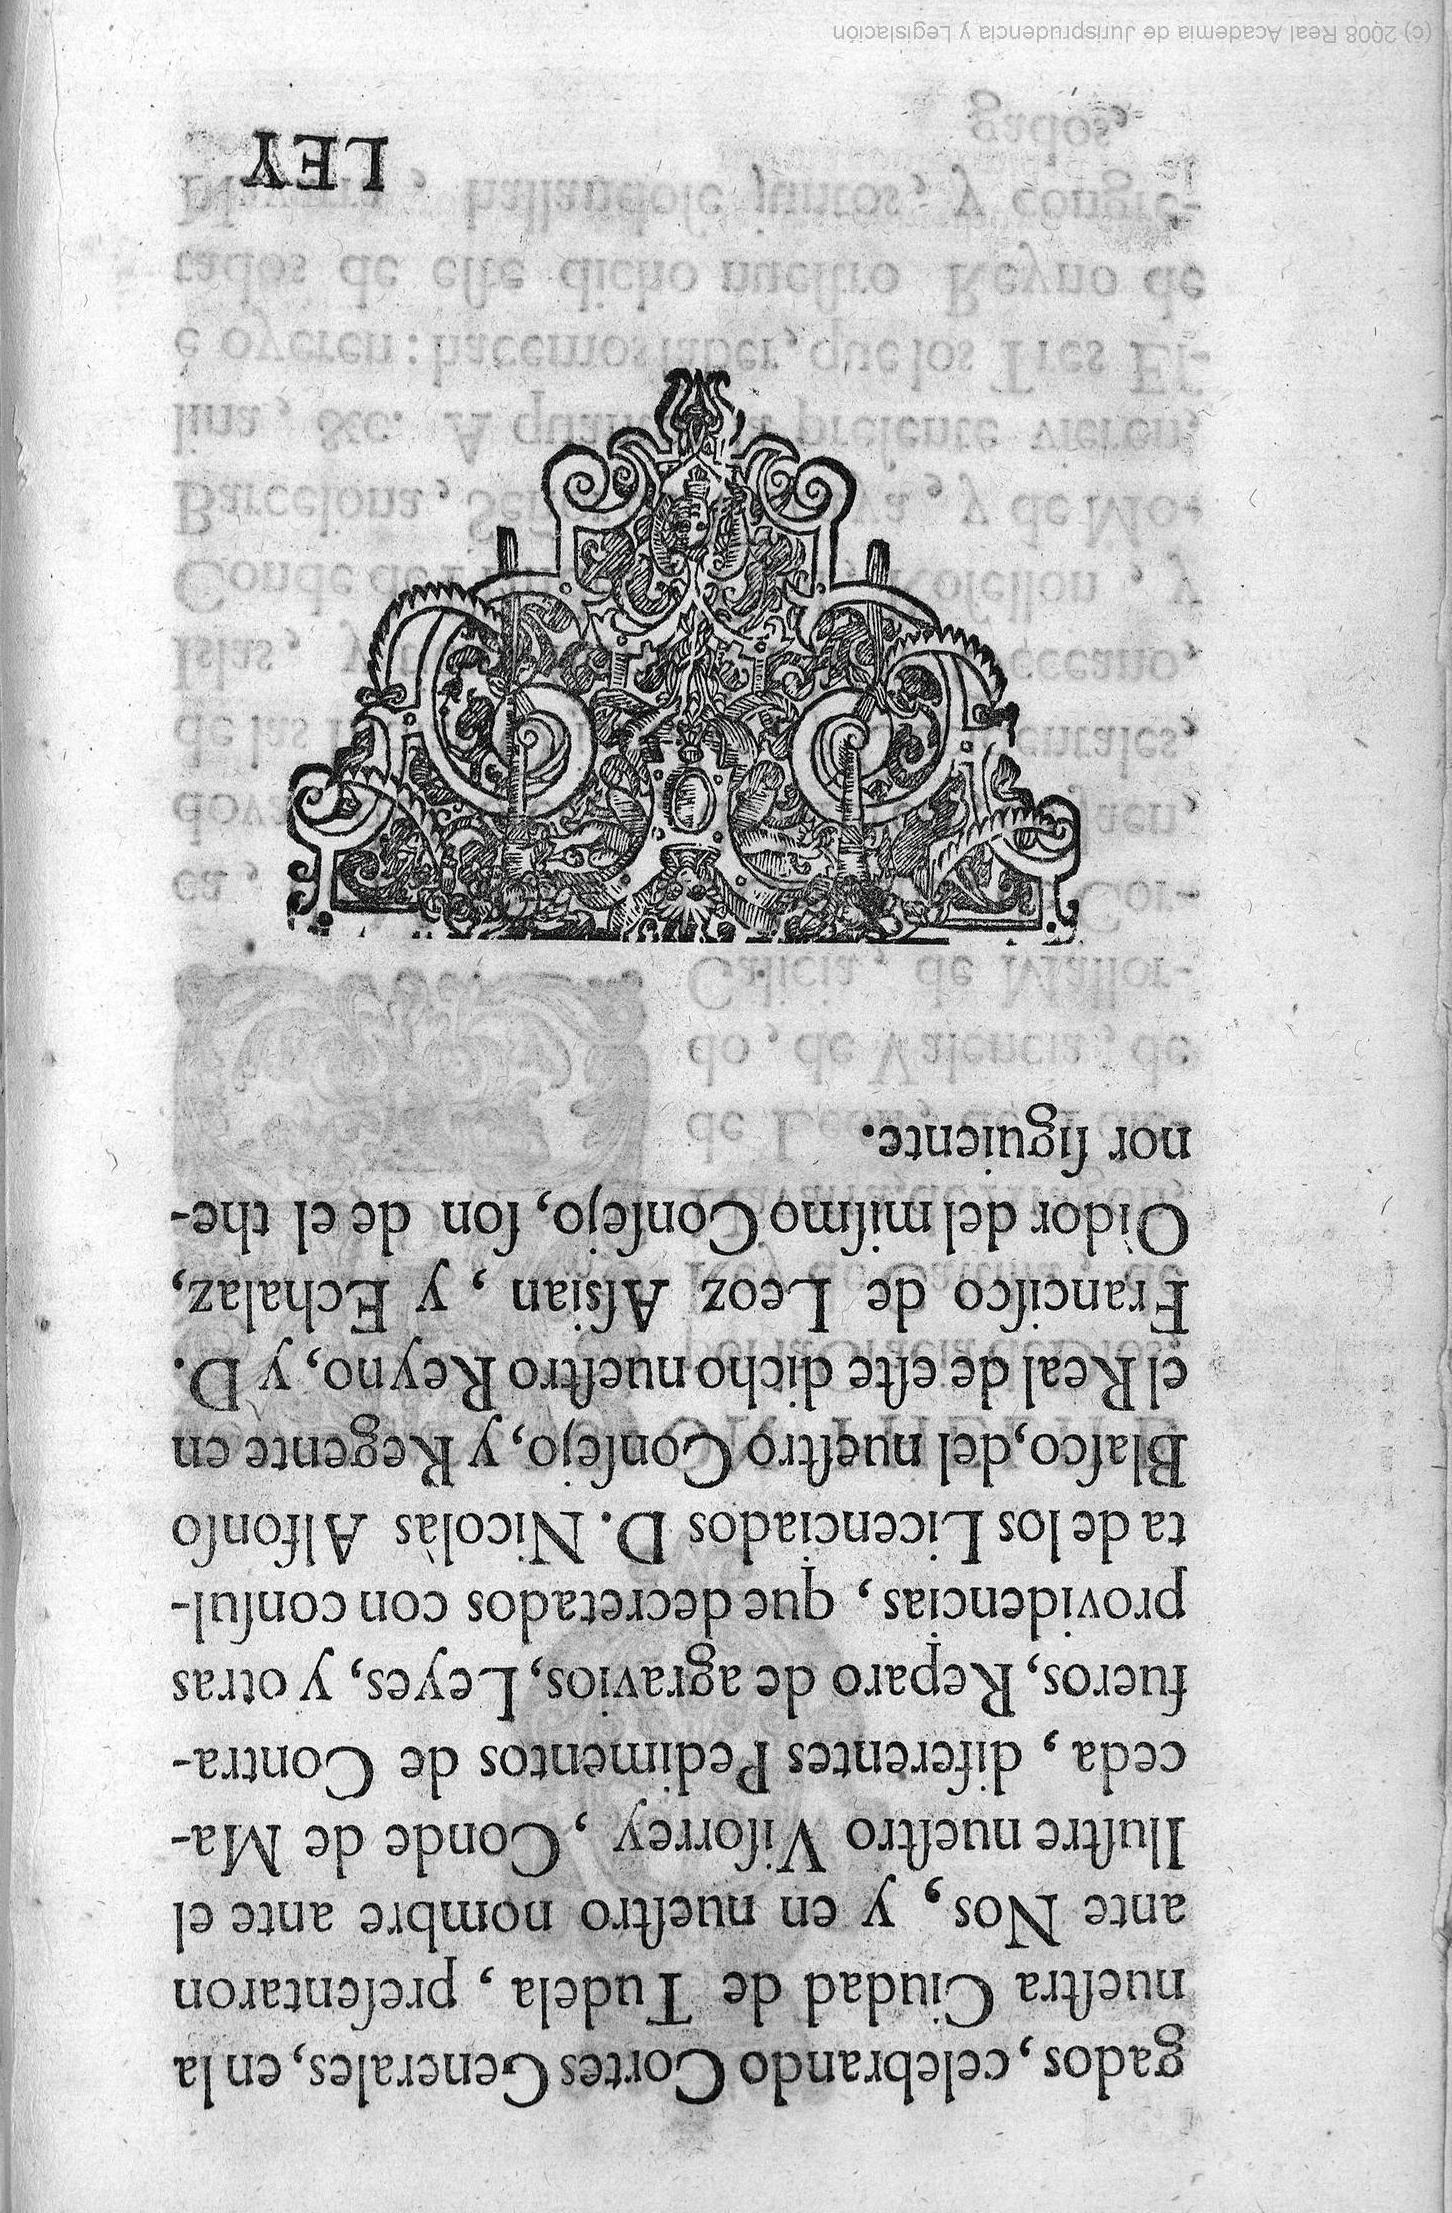 gados, celebrando Cortes Generales, en la
nueſtra Ciudad de Tudela, preſentaron
ante Nos, y en nueſtro nombre ante el
Iluſtre nueſtro Viſorrey, Conde de Ma-
ceda, diferentes Pedimentos de Contra-
fueros, Reparo de agravios, Leyes, y otras
providencias, que decretados con conſul-
ta de los Licenciados D. Nicolàs Alfonſo
Blaſco, del nueſtro Conſejo, y Regente en
el Real de eſte dicho nueſtro Reyno, y D.
Franciſco de Leoz Aſsian, y Echalaz,
Oìdor del miſmo Conſejo, ſon de el the-
nor ſiguiente.
LEY
(c) 2008 Real Academia de Jurisprudencia y Legislación